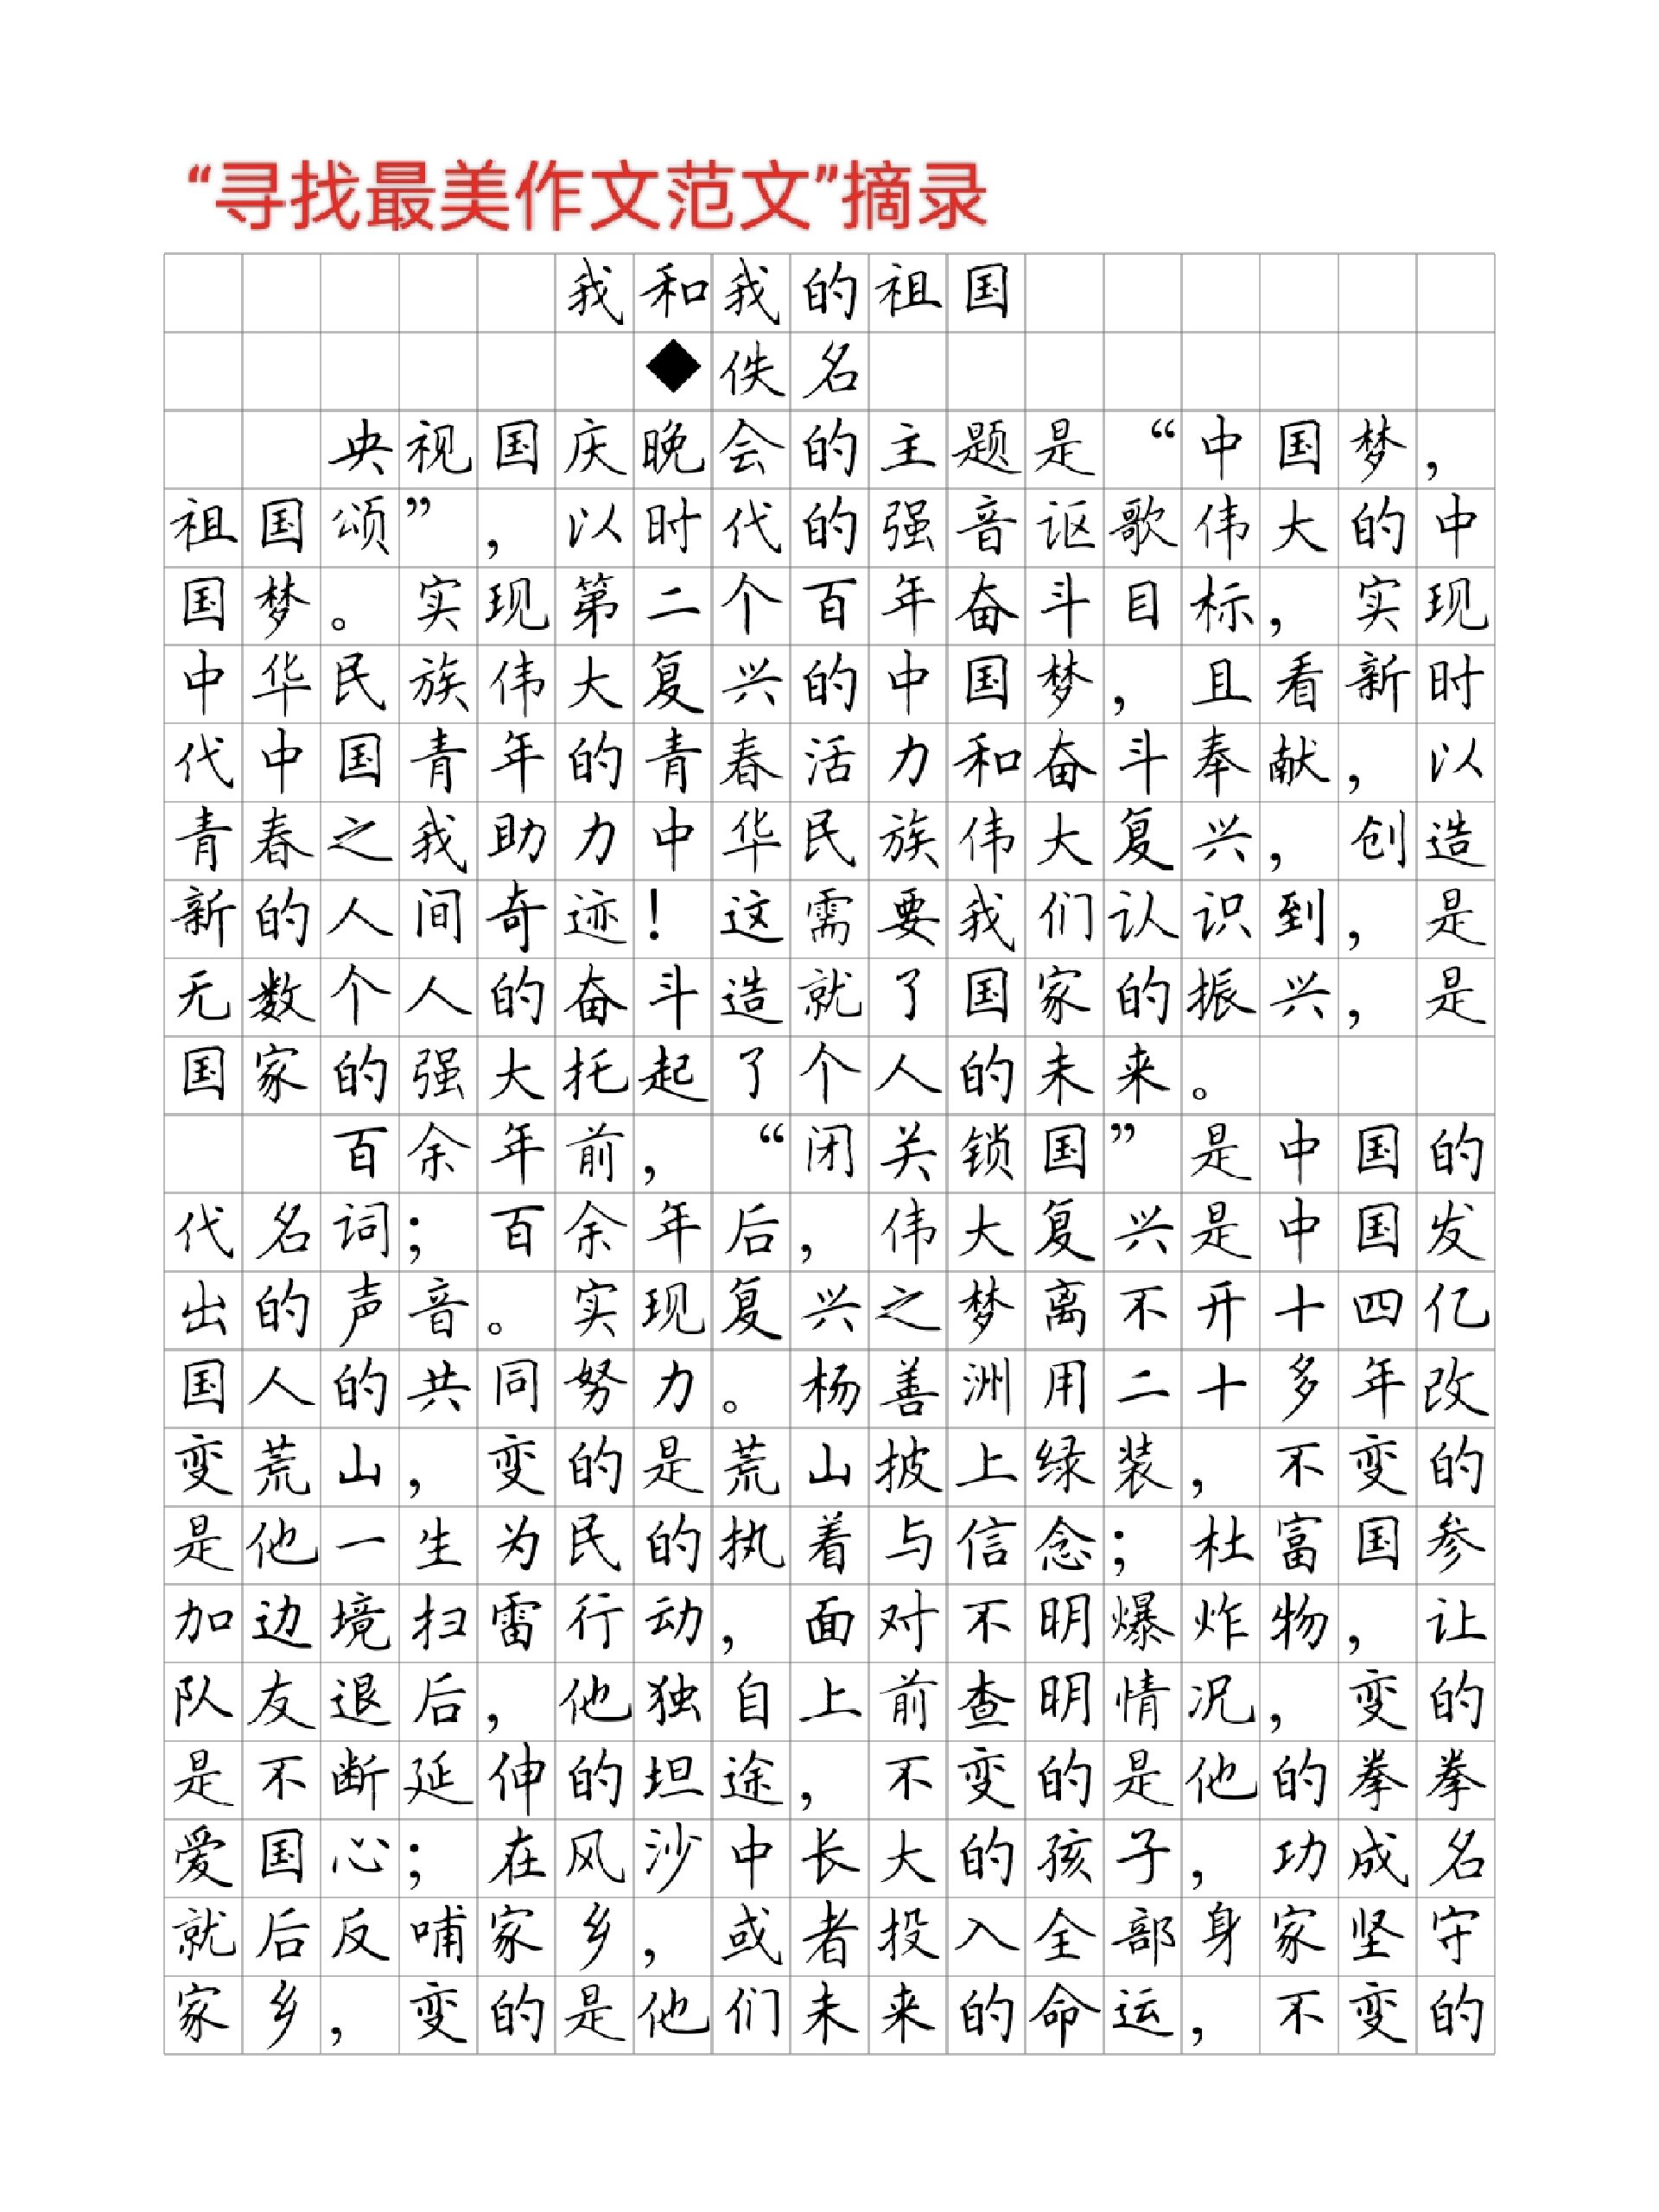 “寻找最美作文范文”摘录
我和我的祖国
◆佚名
央视国庆晚会的主题是“中国梦，
祖国颂”，以时代的强音讴歌伟大的中
国梦。实现第二个百年奋斗目标，实现
中华民族伟大复兴的中国梦，且看新时
代中国青年的青春活力和奋斗奉献，以
青春之我助力中华民族伟大复兴，创造
新的人间奇迹！这需要我们认识到，是
无数个人的奋斗造就了国家的振兴，是
国家的强大托起了个人的未来。
百余年前，“闭关锁国”是中国的
代名词；百余年后，伟大复兴是中国发
出的声音。实现复兴之梦离不开十四亿
国人的共同努力。杨善洲用二十多年改
变荒山，变的是荒山披上绿装，不变的
是他一生为民的执着与信念；杜富国参
加边境扫雷行动，面对不明爆炸物，让
队友退后，他独自上前查明情况，变的
是不断延伸的坦途，不变的是他的拳拳
爱国心；在风沙中长大的孩子，功成名
就后反哺家乡，或者投入全部身家坚守
家乡，变的是他们未来的命运，不变的